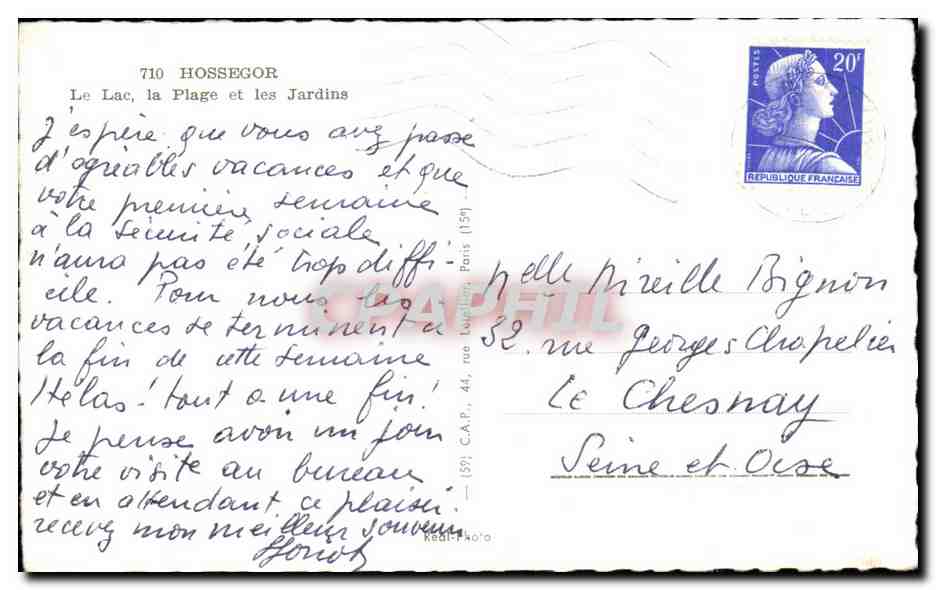 710 HOSSEGOR
Le Lac, la Plage et les Jardins
J'espère que vous avez passe
d'agréables vacances et que
votre première semaine
à la sécurité sociale
n'aura pas été trop diffi-
cile. Pour nous les
vacances se terminent à
la fin de cette semaine
Hélas! tout a une fin!
Je pense avoir un jour
votre visite au bureau
et en attendant ce plaisir
recevez mon meilleur souvenir
POSTES
20F
REPUBLIQUE FRANÇAISE
Melle Mireille Bignon
32, rue Georges Chapelier
Le Chesnay
Seine et Oise
— (59) C.A.P., 44, rue Paris (15e) —
Real-Photo
CPAPHIL